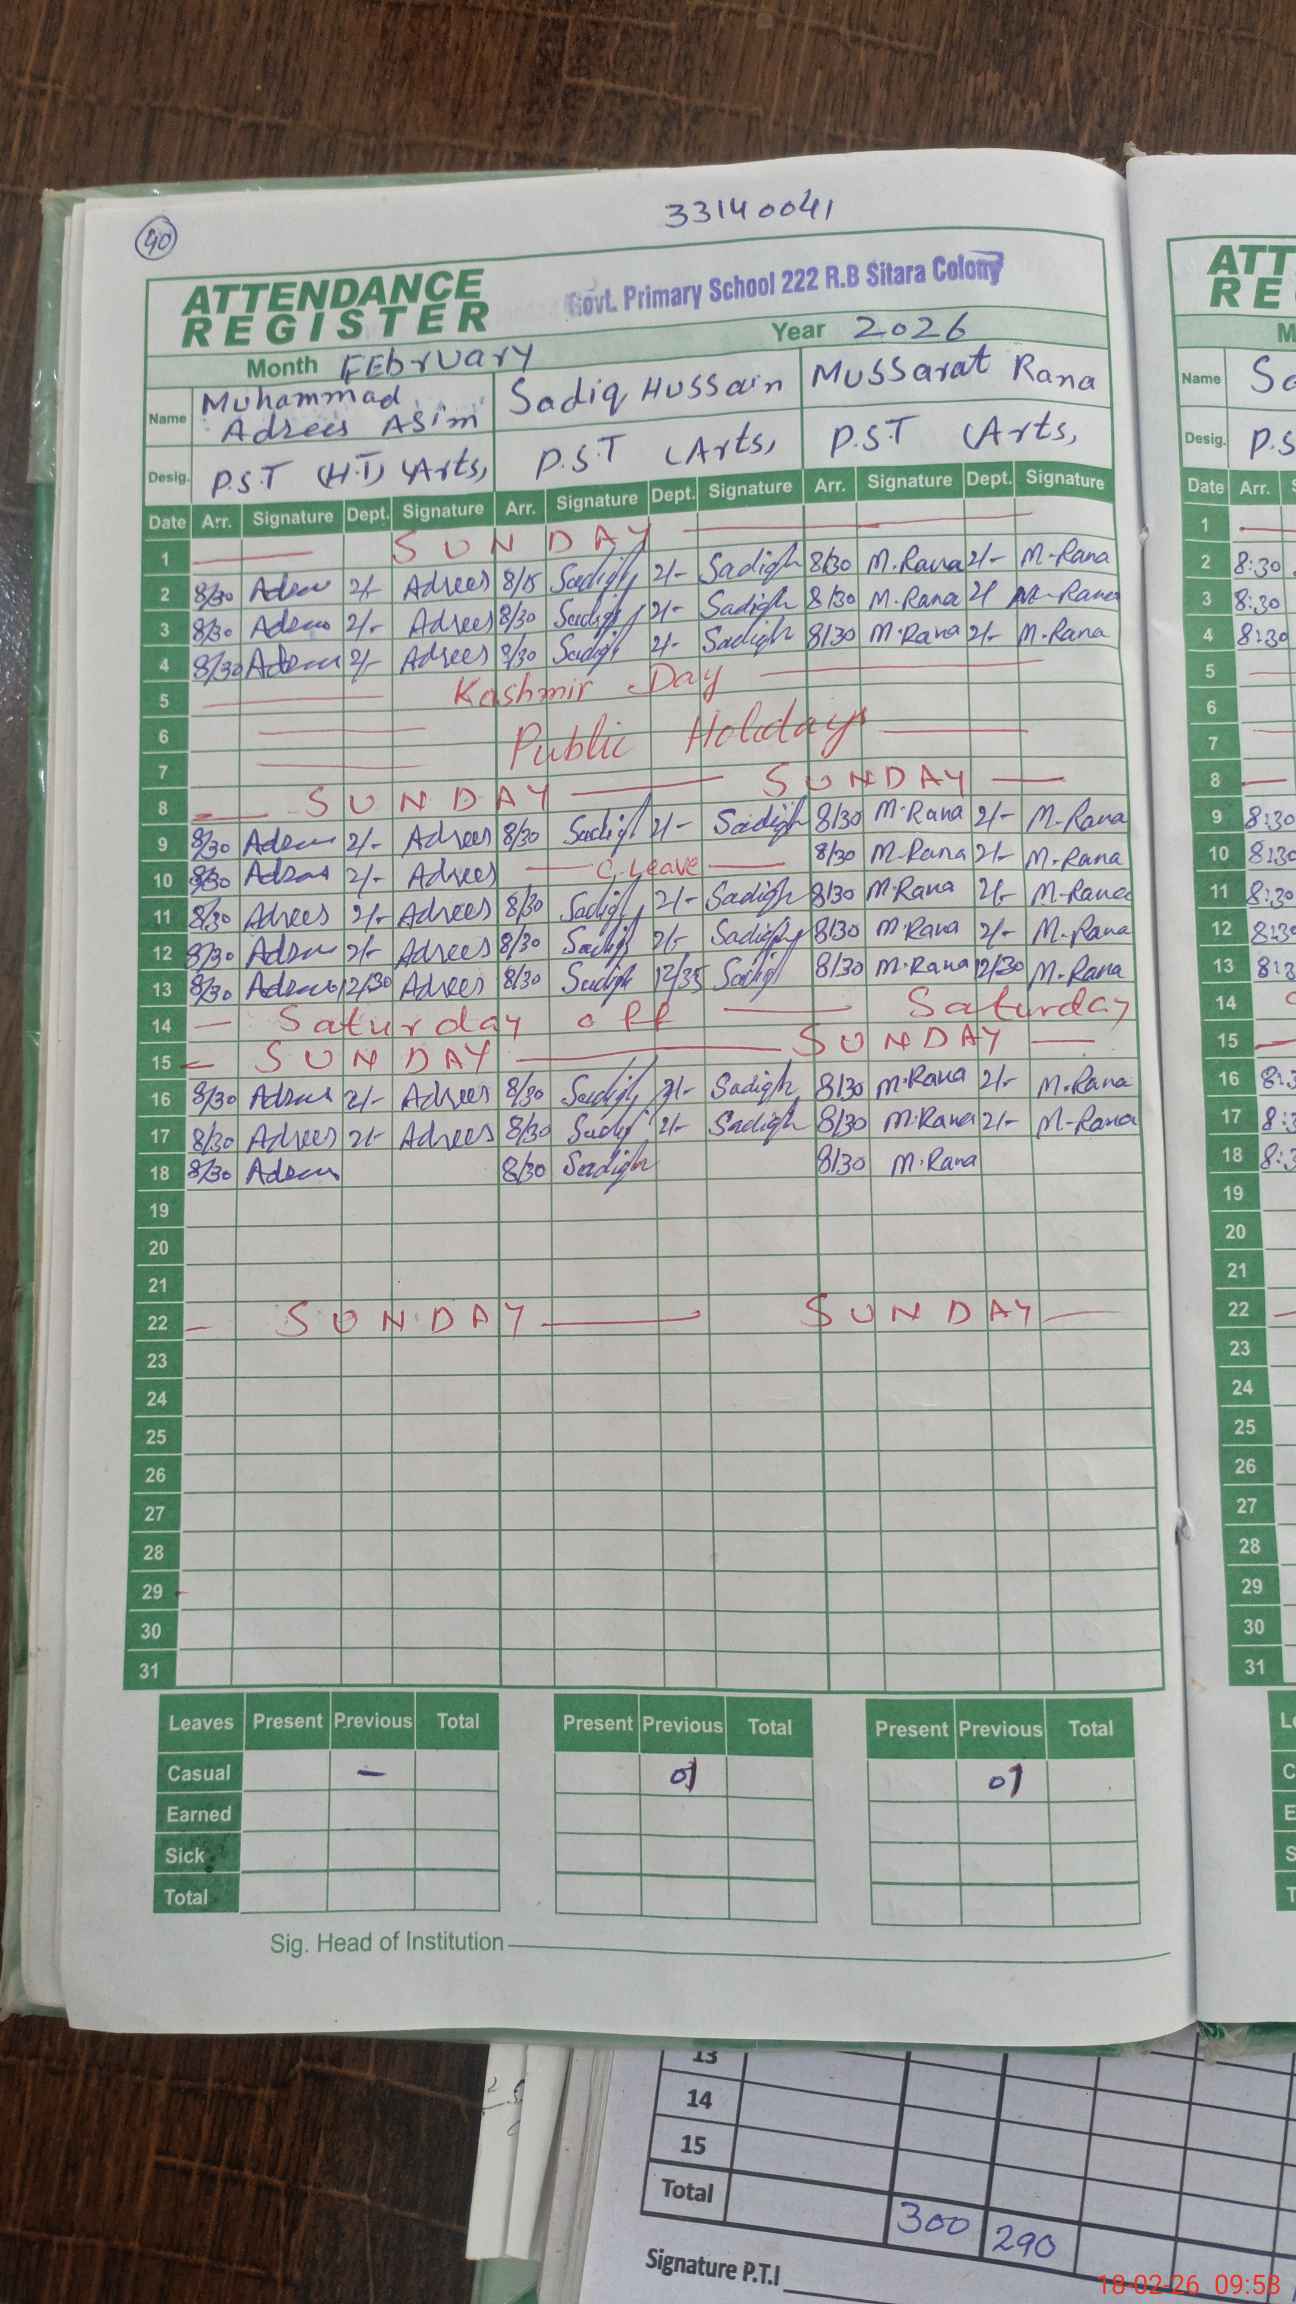 40
33140041
ATTENDANCE REGISTER
Govt. Primary School 222 R.B Sitara Colony
Month FEbruary Year 2026
Name Muhammad Adrees Asim Sadiq Hussain Mussarat Rana
Desig. P.S.T (H.T) (Arts, P.S.T (Arts, P.S.T (Arts,
Date Arr. Signature Dept. Signature Arr. Signature Dept. Signature Arr. Signature Dept. Signature
1 SUNDAY
2 8/30 Adrees 2/- Adrees 8/15 Sadiqh 2/- Sadiqh 8/30 M.Rana 2/- M.Rana
3 8/30 Adrees 2/- Adrees 8/30 Sadiqh 2/- Sadiqh 8/30 M.Rana 2/ M.Rana
4 8/30 Adrees 2/- Adrees 8/30 Sadiqh 2/- Sadiqh 8/30 M.Rana 2/- M.Rana
5 Kashmir Day
6 Public Holidays
7
8 SUNDAY SUNDAY
9 8/30 Adrees 2/- Adrees 8/30 Sadiqh 2/- Sadiqh 8/30 M.Rana 2/- M.Rana
10 8/30 Adrees 2/- Adrees C.Leave 8/30 M.Rana 2/- M.Rana
11 8/30 Adrees 2/- Adrees 8/30 Sadiqh 2/- Sadiqh 8/30 M.Rana 2/- M.Rana
12 8/30 Adrees 2/- Adrees 8/30 Sadiqh 2/- Sadiqh 8/30 M.Rana 2/- M.Rana
13 8/30 Adrees 12/30 Adrees 8/30 Sadiqh 12/35 Sadiqh 8/30 M.Rana 12/30 M.Rana
14 Saturday off Saturday
15 SUNDAY SUNDAY
16 8/30 Adrees 2/- Adrees 8/30 Sadiqh 2/- Sadiqh 8/30 M.Rana 2/- M.Rana
17 8/30 Adrees 2/- Adrees 8/30 Sadiqh 2/- Sadiqh 8/30 M.Rana 2/- M.Rana
18 8/30 Adrees 8/30 Sadiqh 8/30 M.Rana
19
20
21
22 SUNDAY SUNDAY
23
24
25
26
27
28
29
30
31
Leaves Present Previous Total Present Previous Total Present Previous Total
Casual - 01 01
Earned
Sick
Total
Sig. Head of Institution
ATT
RE
M
Name Sa
Desig. P.S
Date Arr. S
1
2 8:30
3 8:30
4 8:30
5
6
7
8
9 8:30
10 8:30
11 8:30
12 8:30
13 8:3
14
15
16 8:3
17 8:3
18 8:3
19
20
21
22
23
24
25
26
27
28
29
30
31
L
C
E
S
T
13
14
15
Total 300 290
Signature P.T.I
18-02-26 09:58